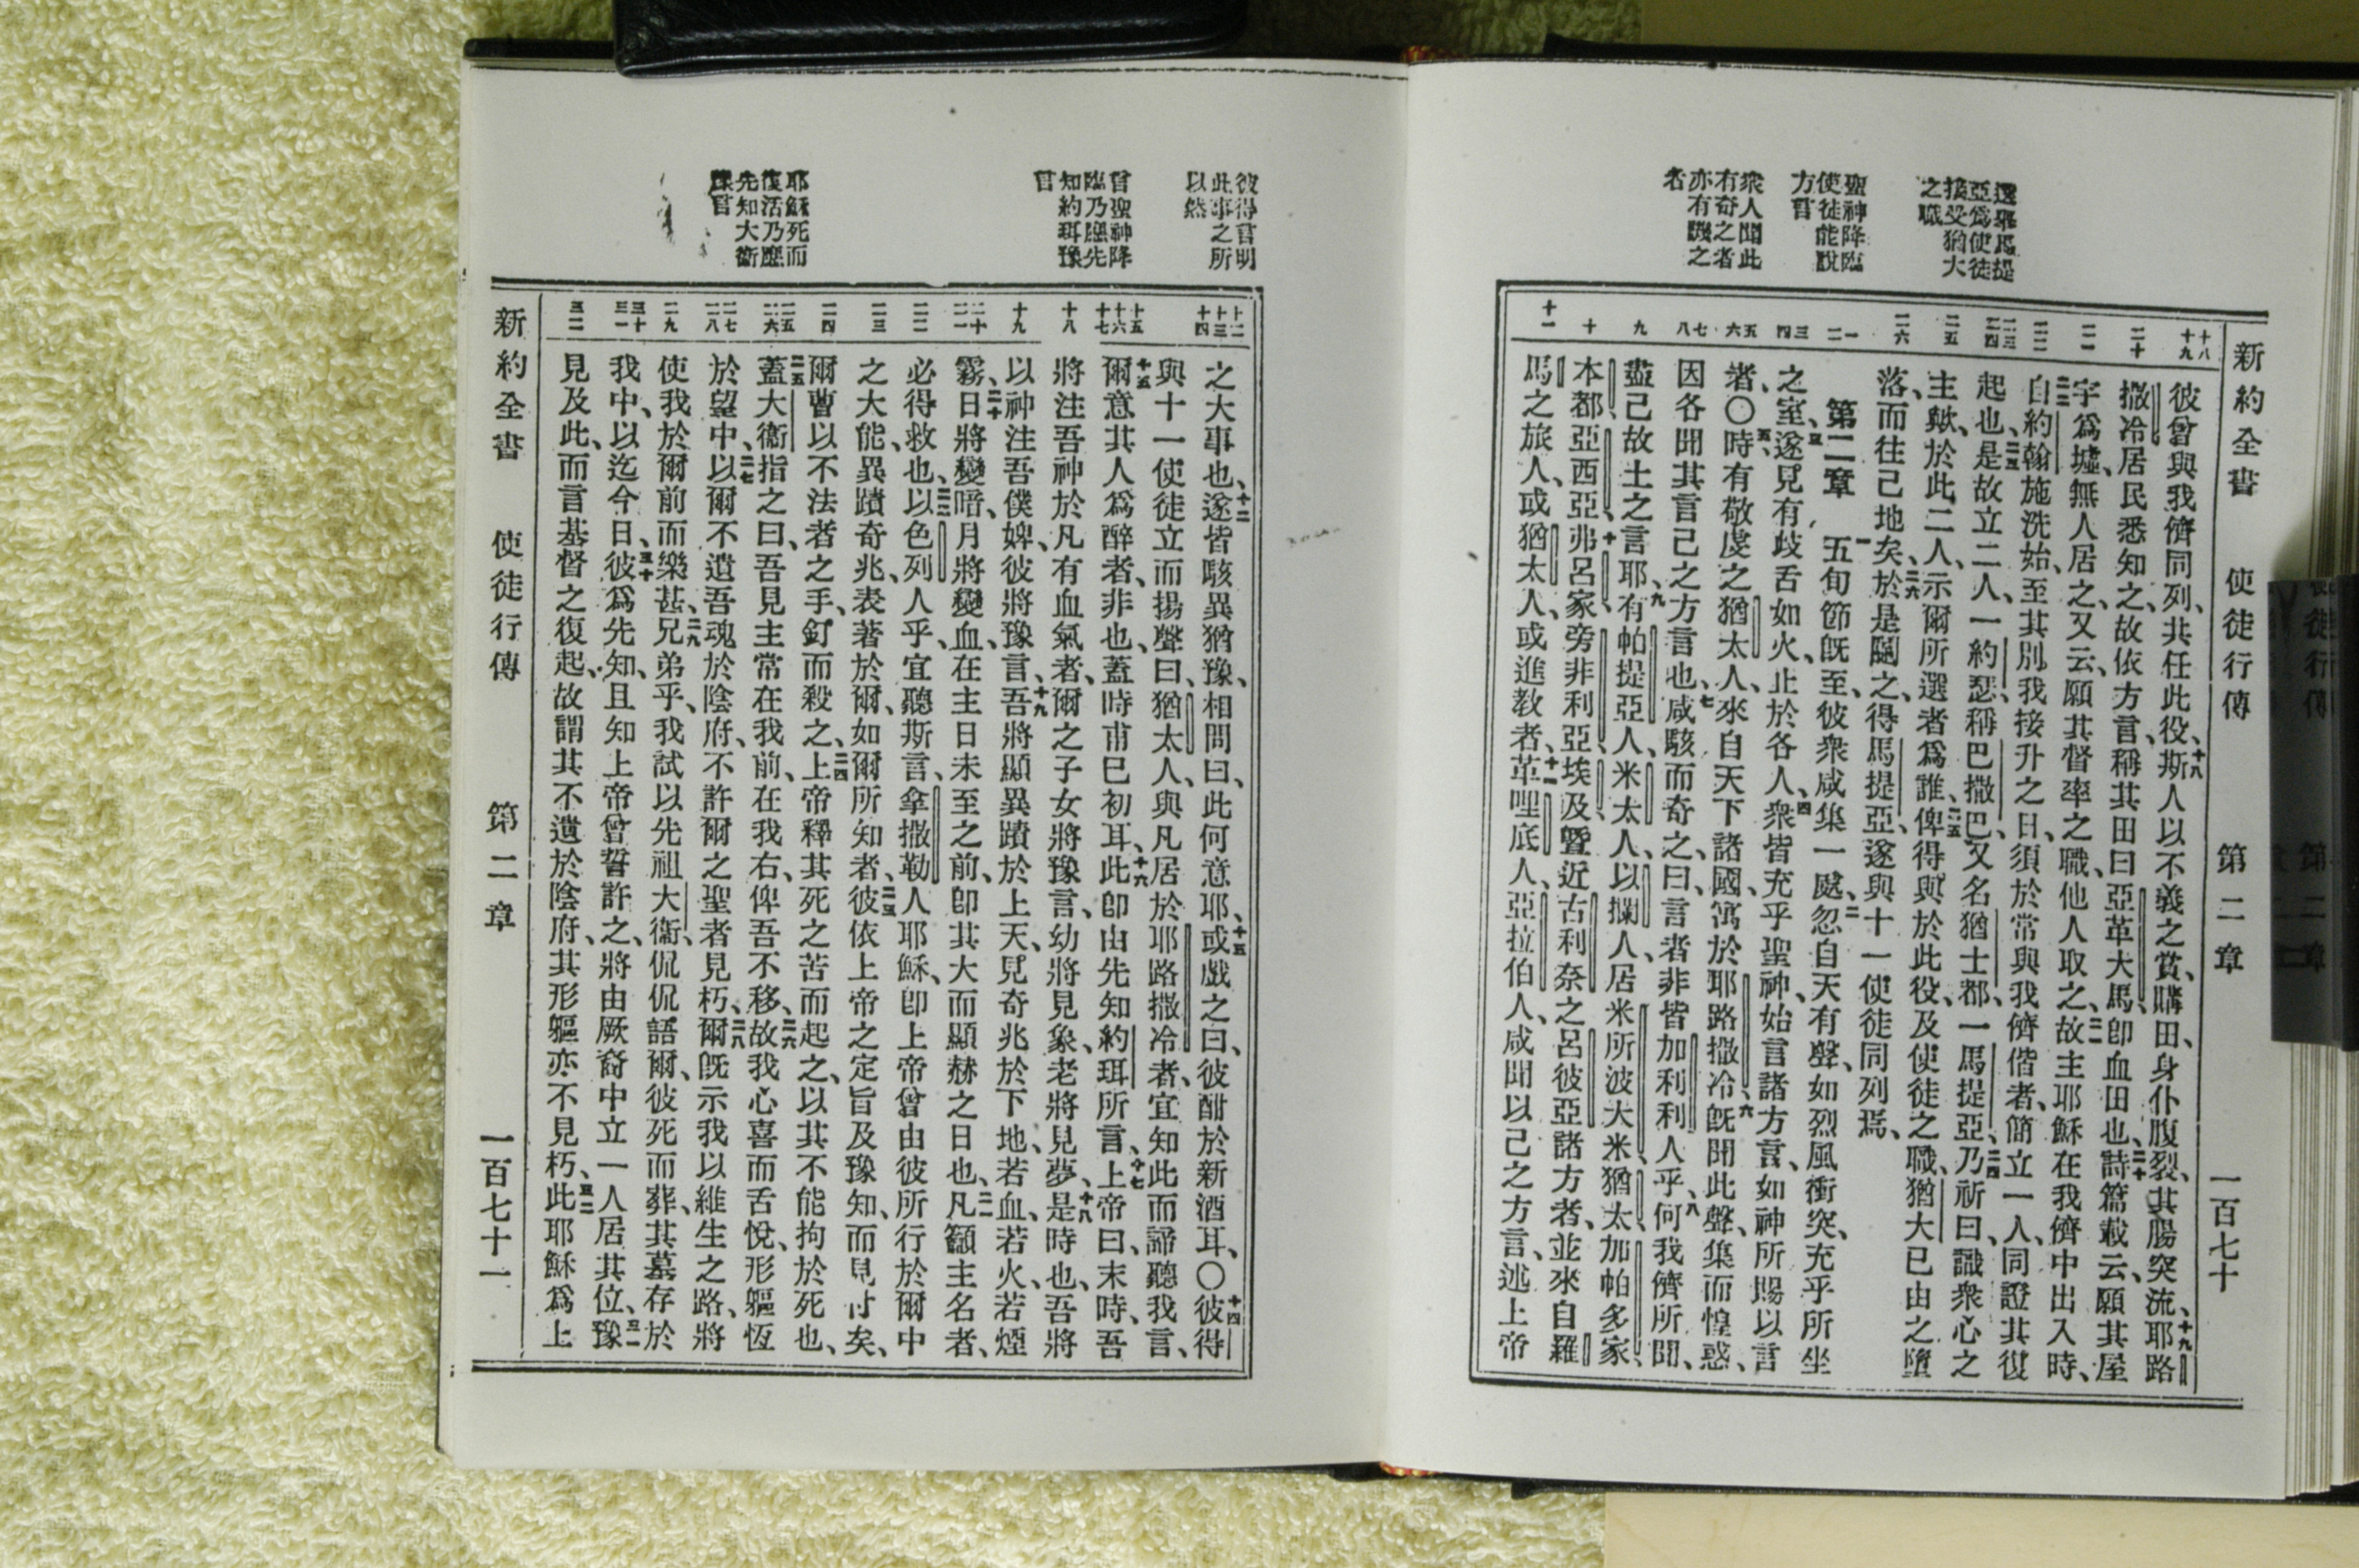 新約全書 使徒行傳 第二章 一百七十
選舉馬提
亞爲使徒
接受猶大
之職
聖神降臨
使徒能說
方言
衆人聞此
有奇之者
亦有譏之
者
十八
十九
二十
二一
二二
二三
二四
二五
二六
一
二
三
四
五
六
七
八
九
十
十一
彼曾與我儕同列、共任此役、十八斯人以不義之賞、購田、身仆腹裂、其腸突流、十九耶路
撒冷居民悉知之、故依方言、稱其田曰亞革大馬、卽血田也、二十詩篇載云、願其屋
宇爲墟、無人居之、又云、願其督率之職、他人取之、二一故主耶穌在我儕中出入時、
二二自約翰施洗始、至其別我接升之日、須於常與我儕偕者、簡立一人、同證其復
起也、二三是故立二人、一約瑟、稱巴撒巴、又名猶士都、一馬提亞、二四乃祈曰、識衆心之
主歟、於此二人、示爾所選者爲誰、二五俾得與於此役、及使徒之職、猶大已由之墮
落、而往己地矣、二六於是鬮之、得馬提亞、遂與十一使徒同列焉、
第二章 一五旬節旣至、彼衆咸集一處、二忽自天有聲、如烈風衝突、充乎所坐
之室、三遂見有歧舌如火、止於各人、四衆皆充乎聖神、始言諸方言、如神所賜以言
者、〇五時有敬虔之猶太人、來自天下諸國、寓於耶路撒冷、六旣聞此聲、集而惶惑、
因各聞其言己之方言也、七咸駭而奇之、曰、言者非皆加利利人乎、八何我儕所聞、
盡己故土之言耶、九有帕提亞人、米太人、以攔人、居米所波大米、猶太、加帕多家、
本都、亞西亞、十弗呂家、旁非利亞、埃及、曁近古利奈之呂彼亞諸方者、並來自羅
馬之旅人、或猶太人、或進教者、十一革哩底人、亞拉伯人、咸聞以己之方言、述上帝
彼得言明
此事之所
以然
曾聖神降
臨乃應先
知約珥豫
言
耶穌死而
復活乃應
先知大衞
豫言
十二
十三
十四
十五
十六
十七
十八
十九
二十
二一
二二
二三
二四
二五
二六
二七
二八
二九
三十
三一
三二
之大事也、十二遂皆駭異猶豫、相問曰、此何意耶、十五或戲之曰、彼酣於新酒耳、〇十四彼得
與十一使徒立而揚聲曰、猶太人、與凡居於耶路撒冷者、宜知此而諦聽我言、
十五爾意其人爲醉者、非也、蓋時甫巳初耳、十六此卽由先知約珥所言、十七上帝曰、末時、吾
將注吾神於凡有血氣者、爾之子女將豫言、幼將見象、老將見夢、十八是時也、吾將
以神注吾僕婢、彼將豫言、十九吾將顯異蹟於上天、見奇兆於下地、若血、若火、若煙
霧、二十日將變暗、月將變血、在主日未至之前、卽其大而顯赫之日也、二一凡籲主名者、
必得救也、二二以色列人乎、宜聽斯言、拿撒勒人耶穌、卽上帝曾由彼所行於爾中
之大能、異蹟奇兆、表著於爾、如爾所知者、二三彼依上帝之定旨及豫知、而見付矣、
爾曹以不法者之手、釘而殺之、二四上帝釋其死之苦而起之、以其不能拘於死也、
二五蓋大衞指之曰、吾見主常在我前、在我右、俾吾不移、二六故我心喜而舌悅、形軀恆
於望中、二七以爾不遺吾魂於陰府、不許爾之聖者見朽、二八爾旣示我以維生之路、將
使我於爾前而樂甚、二九兄弟乎、我試以先祖大衞、侃侃語爾、彼死而葬、其墓存於
我中、以迄今日、三十彼爲先知、且知上帝曾誓許之、將由厥裔中立一人居其位、三一豫
見及此、而言基督之復起、故謂其不遺於陰府、其形軀亦不見朽、三二此耶穌爲上
新約全書 使徒行傳 第二章 一百七十一